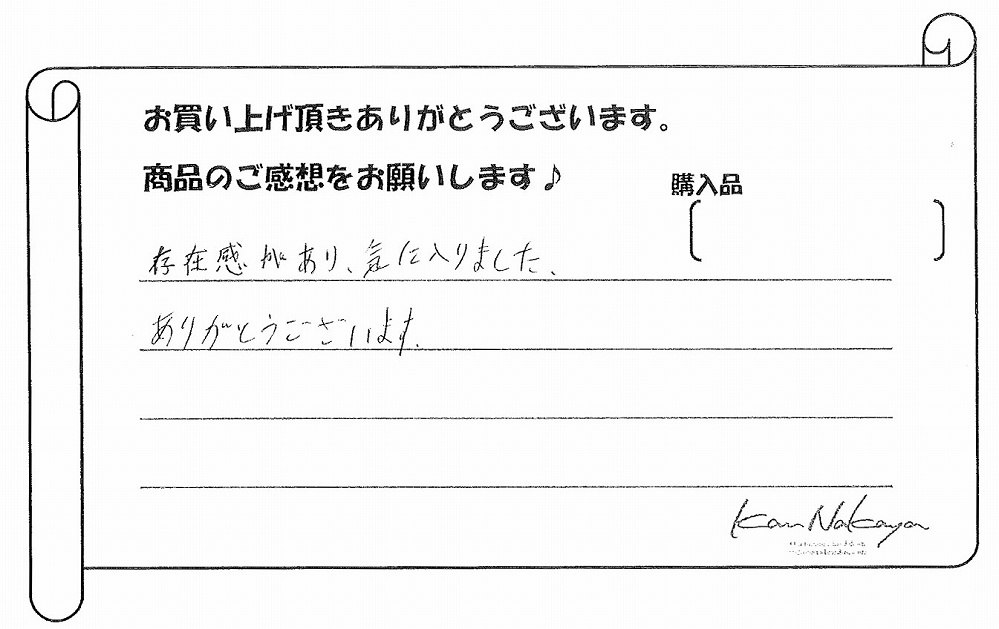 お買い上げ頂きありがとうございます。
商品のご感想をお願いします♪
購入品
存在感があり、気に入りました、
ありがとうございます.
Kan Nakaya